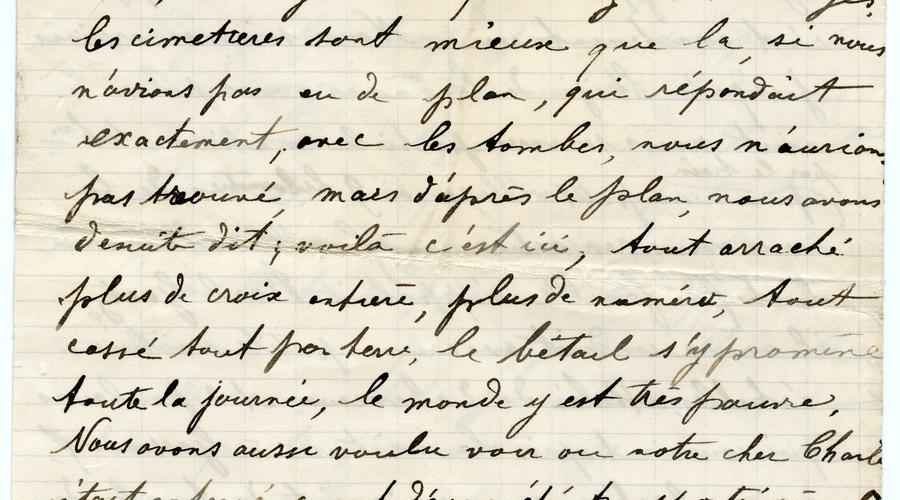 les cimetieres sont mieux que la, si nous
n'avions pas eu de plan, qui répondait
exactement, avec les tombes, nous n'aurions
pas trouvé, mais d'après le plan, nous avons
desuite dit; voilà c'est ici, tout arraché
plus de croix entiere, plus de numéro, tout
cassé tout par terre, le bétail s'y promène
toute la journée, le monde y est très pauvre,
Nous avons aussi voulu voir ou notre cher Charle
était